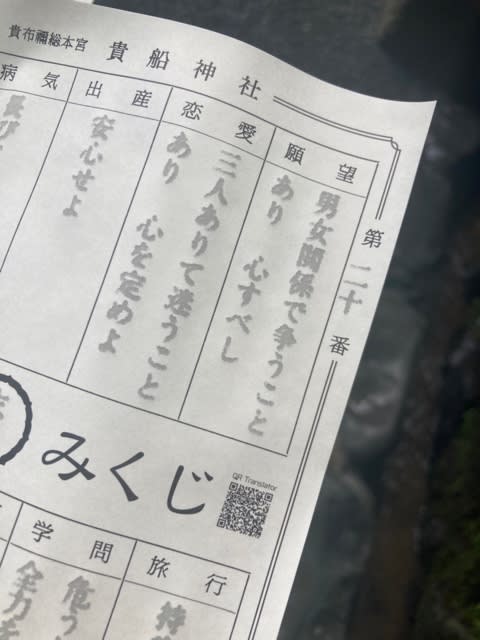 貴布禰総本宮 貴船神社
第二十番
願望
男女関係で争うこと
あり 心すべし
恋愛
三人ありて迷うこと
あり 心を定めよ
出産
安心せよ
病気
みくじ
QR Translator
旅行
学問
危う
全力を